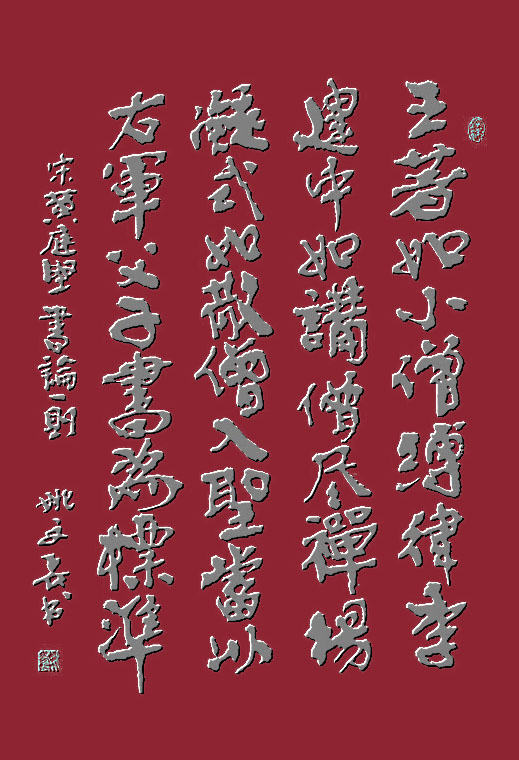 王著如小僧縛律李
建中如講僧参禪楊
凝式如散僧入聖當以
右軍父子書為標準
宋黃庭堅書論一則 姚文书